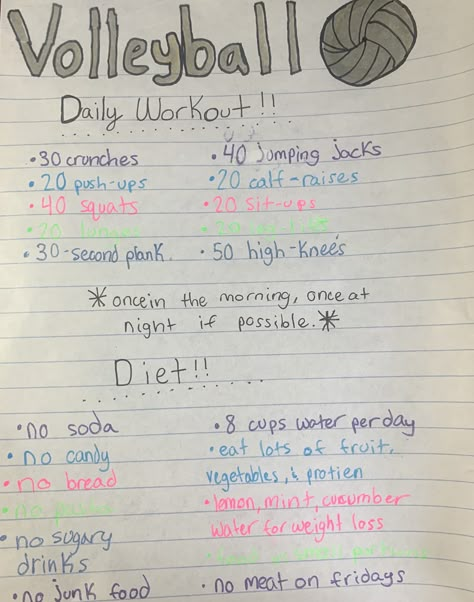 Volleyball
Daily Workout!!
•30 crunches
•20 push-ups
•40 squats
•20 lunges
•30-second plank.
•40 jumping jacks
•20 calf-raises
•20 sit-ups
•50 high-knees
*once in the morning, once at
night if possible.*
Diet!!
•no soda
•no candy
•no bread
•no
•no sugary
drinks
•no junk food
•8 cups water per day
•eat lots of fruit,
vegetables, & protien
•lemon, mint, cucumber
water for weight loss
•no meat on fridays